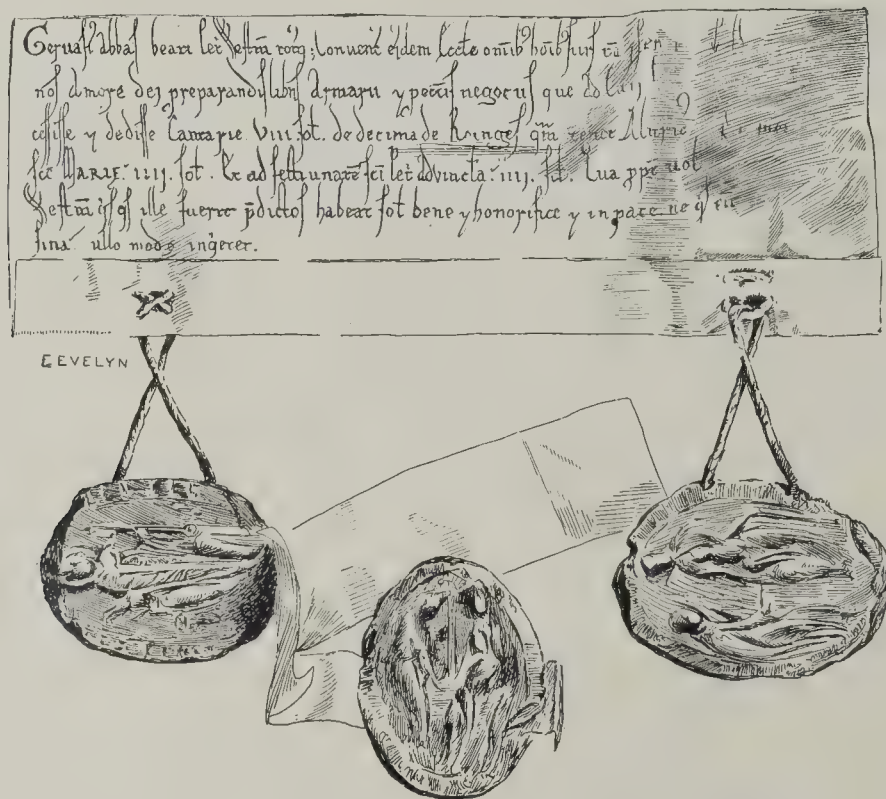 Geruasi' abbas beati Petri Westm̄ totq; Conuent' eidem eccle omib' hoib' suis
nos amore dei preparandis libris armarii ⁊ peciis negociis que
cessisse ⁊ dedisse Cantarie. VIII. sol. de decima de Roinges qm̄ tenet
sce MARIE. IIII. sol. Et ad festiuitatē sci Petri ad vincla. IIII. sol. Qua ppt
Westm̄ ille fuerit p̄dictos habeat sol bene ⁊ honorifice ⁊ in pace ne
sina ullo modo ingerer.
E EVELYN